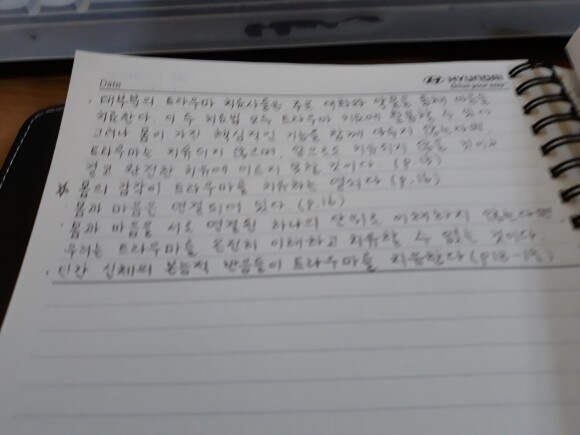 Date HYUNDAI
· 대부분의 트라우마 치료사들은 주로 대화와 약물을 통해 마음을
치료한다. 이 두 치료법 모두 트라우마 치료에 활용할 수 있다
그러나 몸이 가진 핵심적인 기능을 함께 다루지 않는다면
트라우마는 치유되지 않으며, 앞으로도 치유되지 않을 것이고
결코 완전한 치유에 이르지 못할 것이다. (p.15)
몸의 감각이 트라우마를 치유하는 열쇠다 (p.16)
몸과 마음은 연결되어 있다 (p.16)
· 몸과 마음을 서로 연결된 하나의 단위로 이해하지 않는다면
우리는 트라우마를 온전히 이해하고 치유할 수 없는 것이다.
· 인간 신체의 본능적 반응들이 트라우마를 치유한다